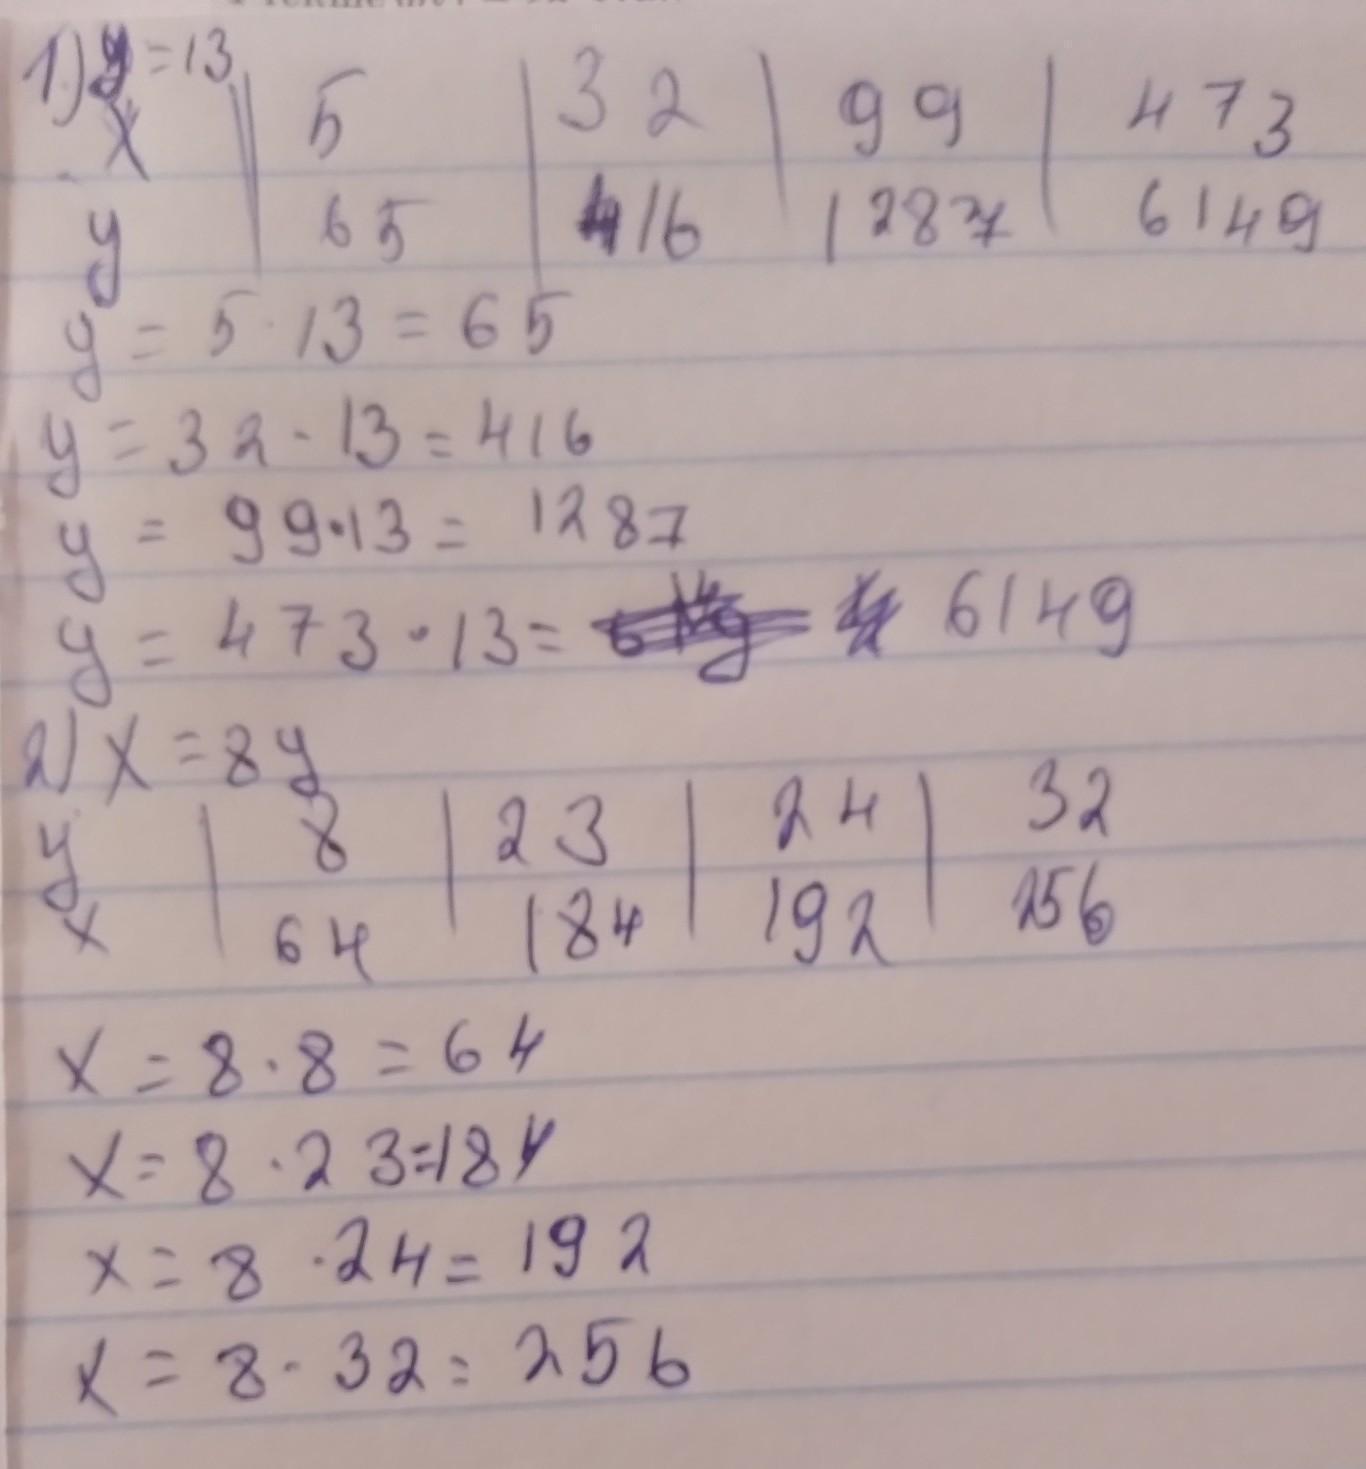 1) y = 13
x | 5 | 32 | 99 | 473
y 65 416 1287 6149
y = 5 · 13 = 65
y = 32 · 13 = 416
y = 99 · 13 = 1287
y = 473 · 13 = 6149
2) x = 8y
y | 8 | 23 | 24 | 32
x 64 184 192 256
x = 8 · 8 = 64
x = 8 · 23 = 184
x = 8 · 24 = 192
x = 8 · 32 = 256